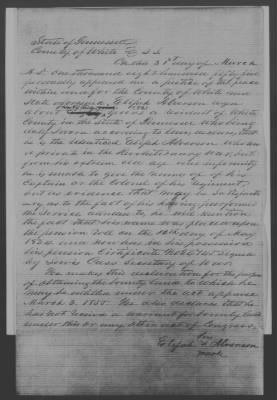 State of Tennessee
County of White } S.S.
On this 31st day of March
A.D. one thousand eight hundred fifty five
personally appeared me a Justice of the peace
within and for the County of White and
State aforesaid. Elijah Alverson aged
about years a resident of White
County in the State of Tennessee who being
duly Sworn according to law, declares that
he is the identical Elijah Alverson who was
a private in the Revolutionary War, but
from his extreem old age and infirmity
he is unable to give the name of his
Captain or the Colonel of his regiment,
but as evidence that may
as to the fact of his having performed
the service he will mention
the fact that his name was placed upon
the pension Roll on the day of
18 and now has in his possession
his pension Certificate Signed
by Lewis Cass Secretary of War.
He makes this declaration for the purpose
of obtaining the bounty land to which he
may be entitled under the act approved
March 3. 1855. He also declares that he
has not received a warrant for bounty land
under this or any other act of Congress.
his
Elijah X Alverson
mark